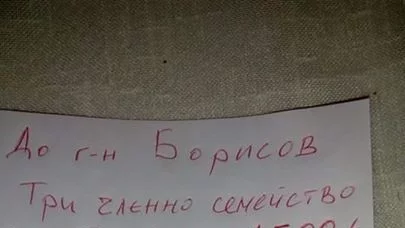 До г-н Борисов
Три членно семейство